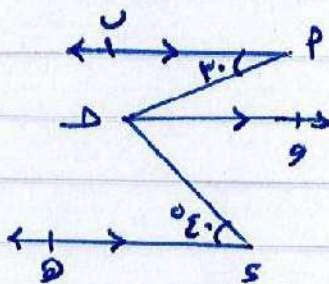 ب أ
٣٠
ج و
٤٠°
ه د